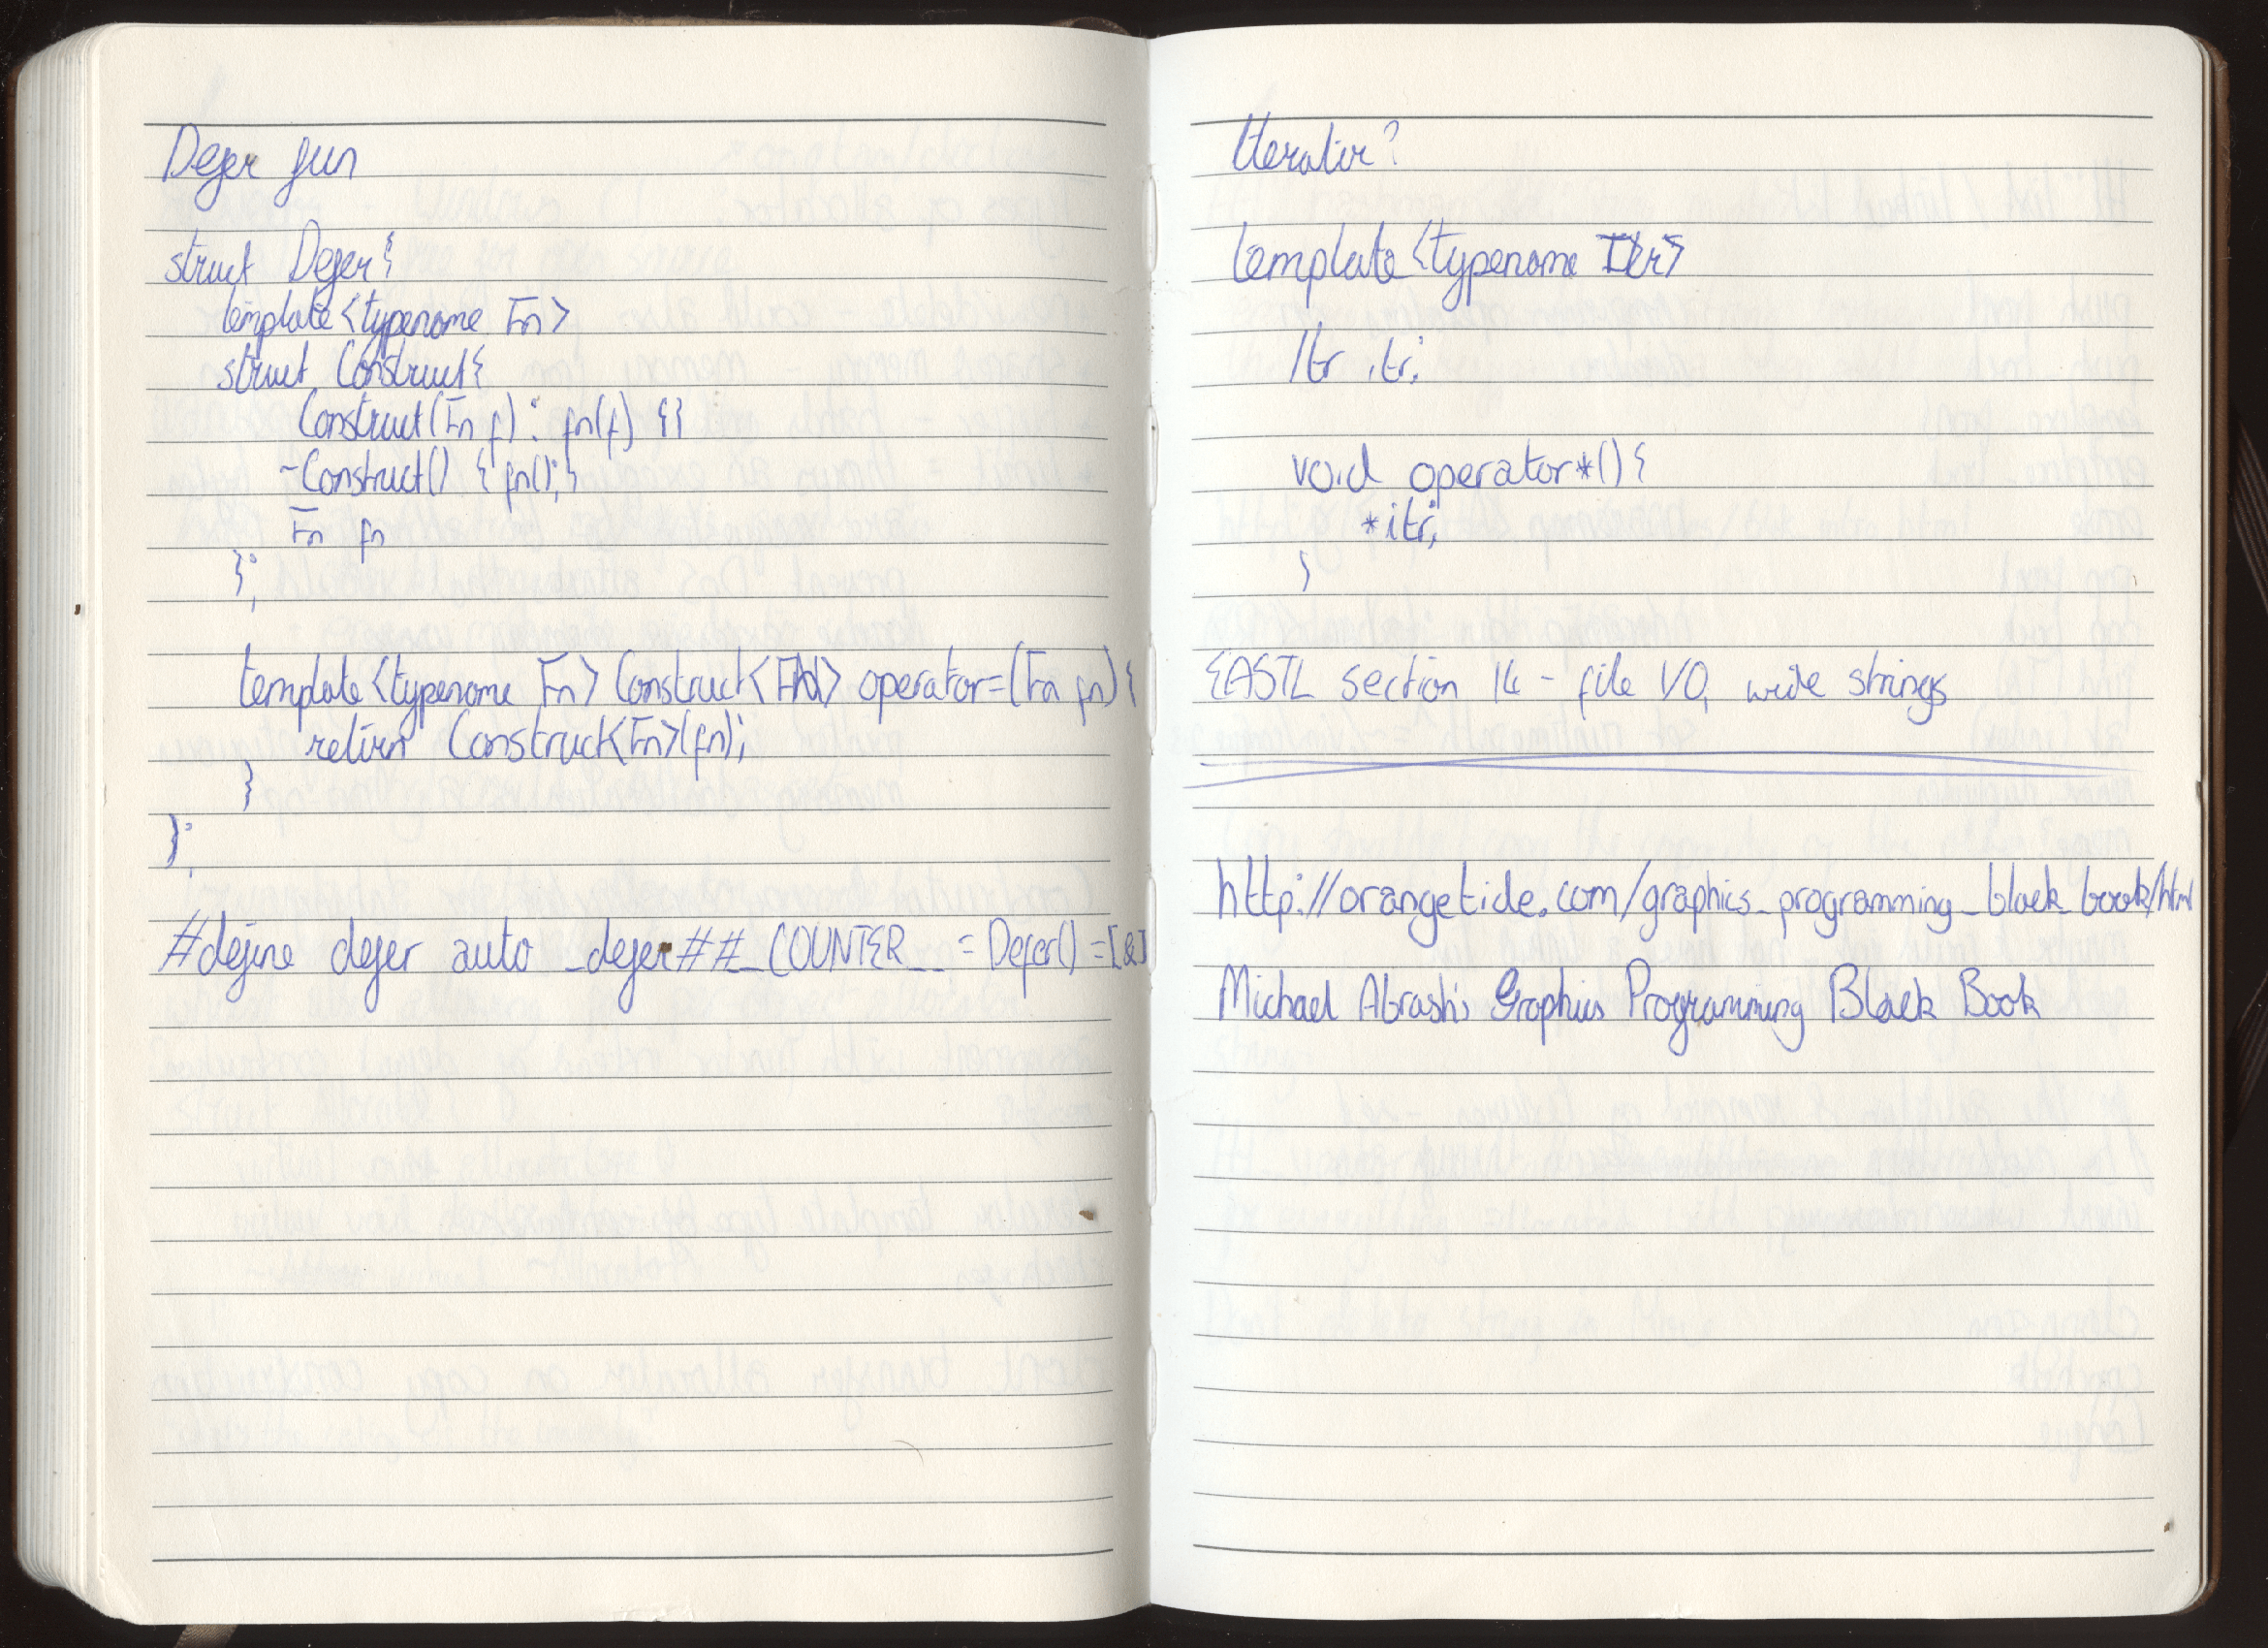 Defer fun
struct Defer{
template<typename Fn>
struct Construct{
Construct(Fn f) : fn(f) {}
~Construct() { fn(); }
Fn fn
};
template<typename Fn> Construct<Fn> operator=(Fn fn){
return Construct<Fn>(fn);
}
};
#define defer auto _defer##__COUNTER__ = Defer() =[&]
Iterator?
template<typename Itr>
Itr itr;
void operator*(){
*itr;
}
EASTL section 14 - file I/O, wide strings
http://orangetide.com/graphics_programming_black_book/html
Michael Abrash's Graphics Programming Black Book